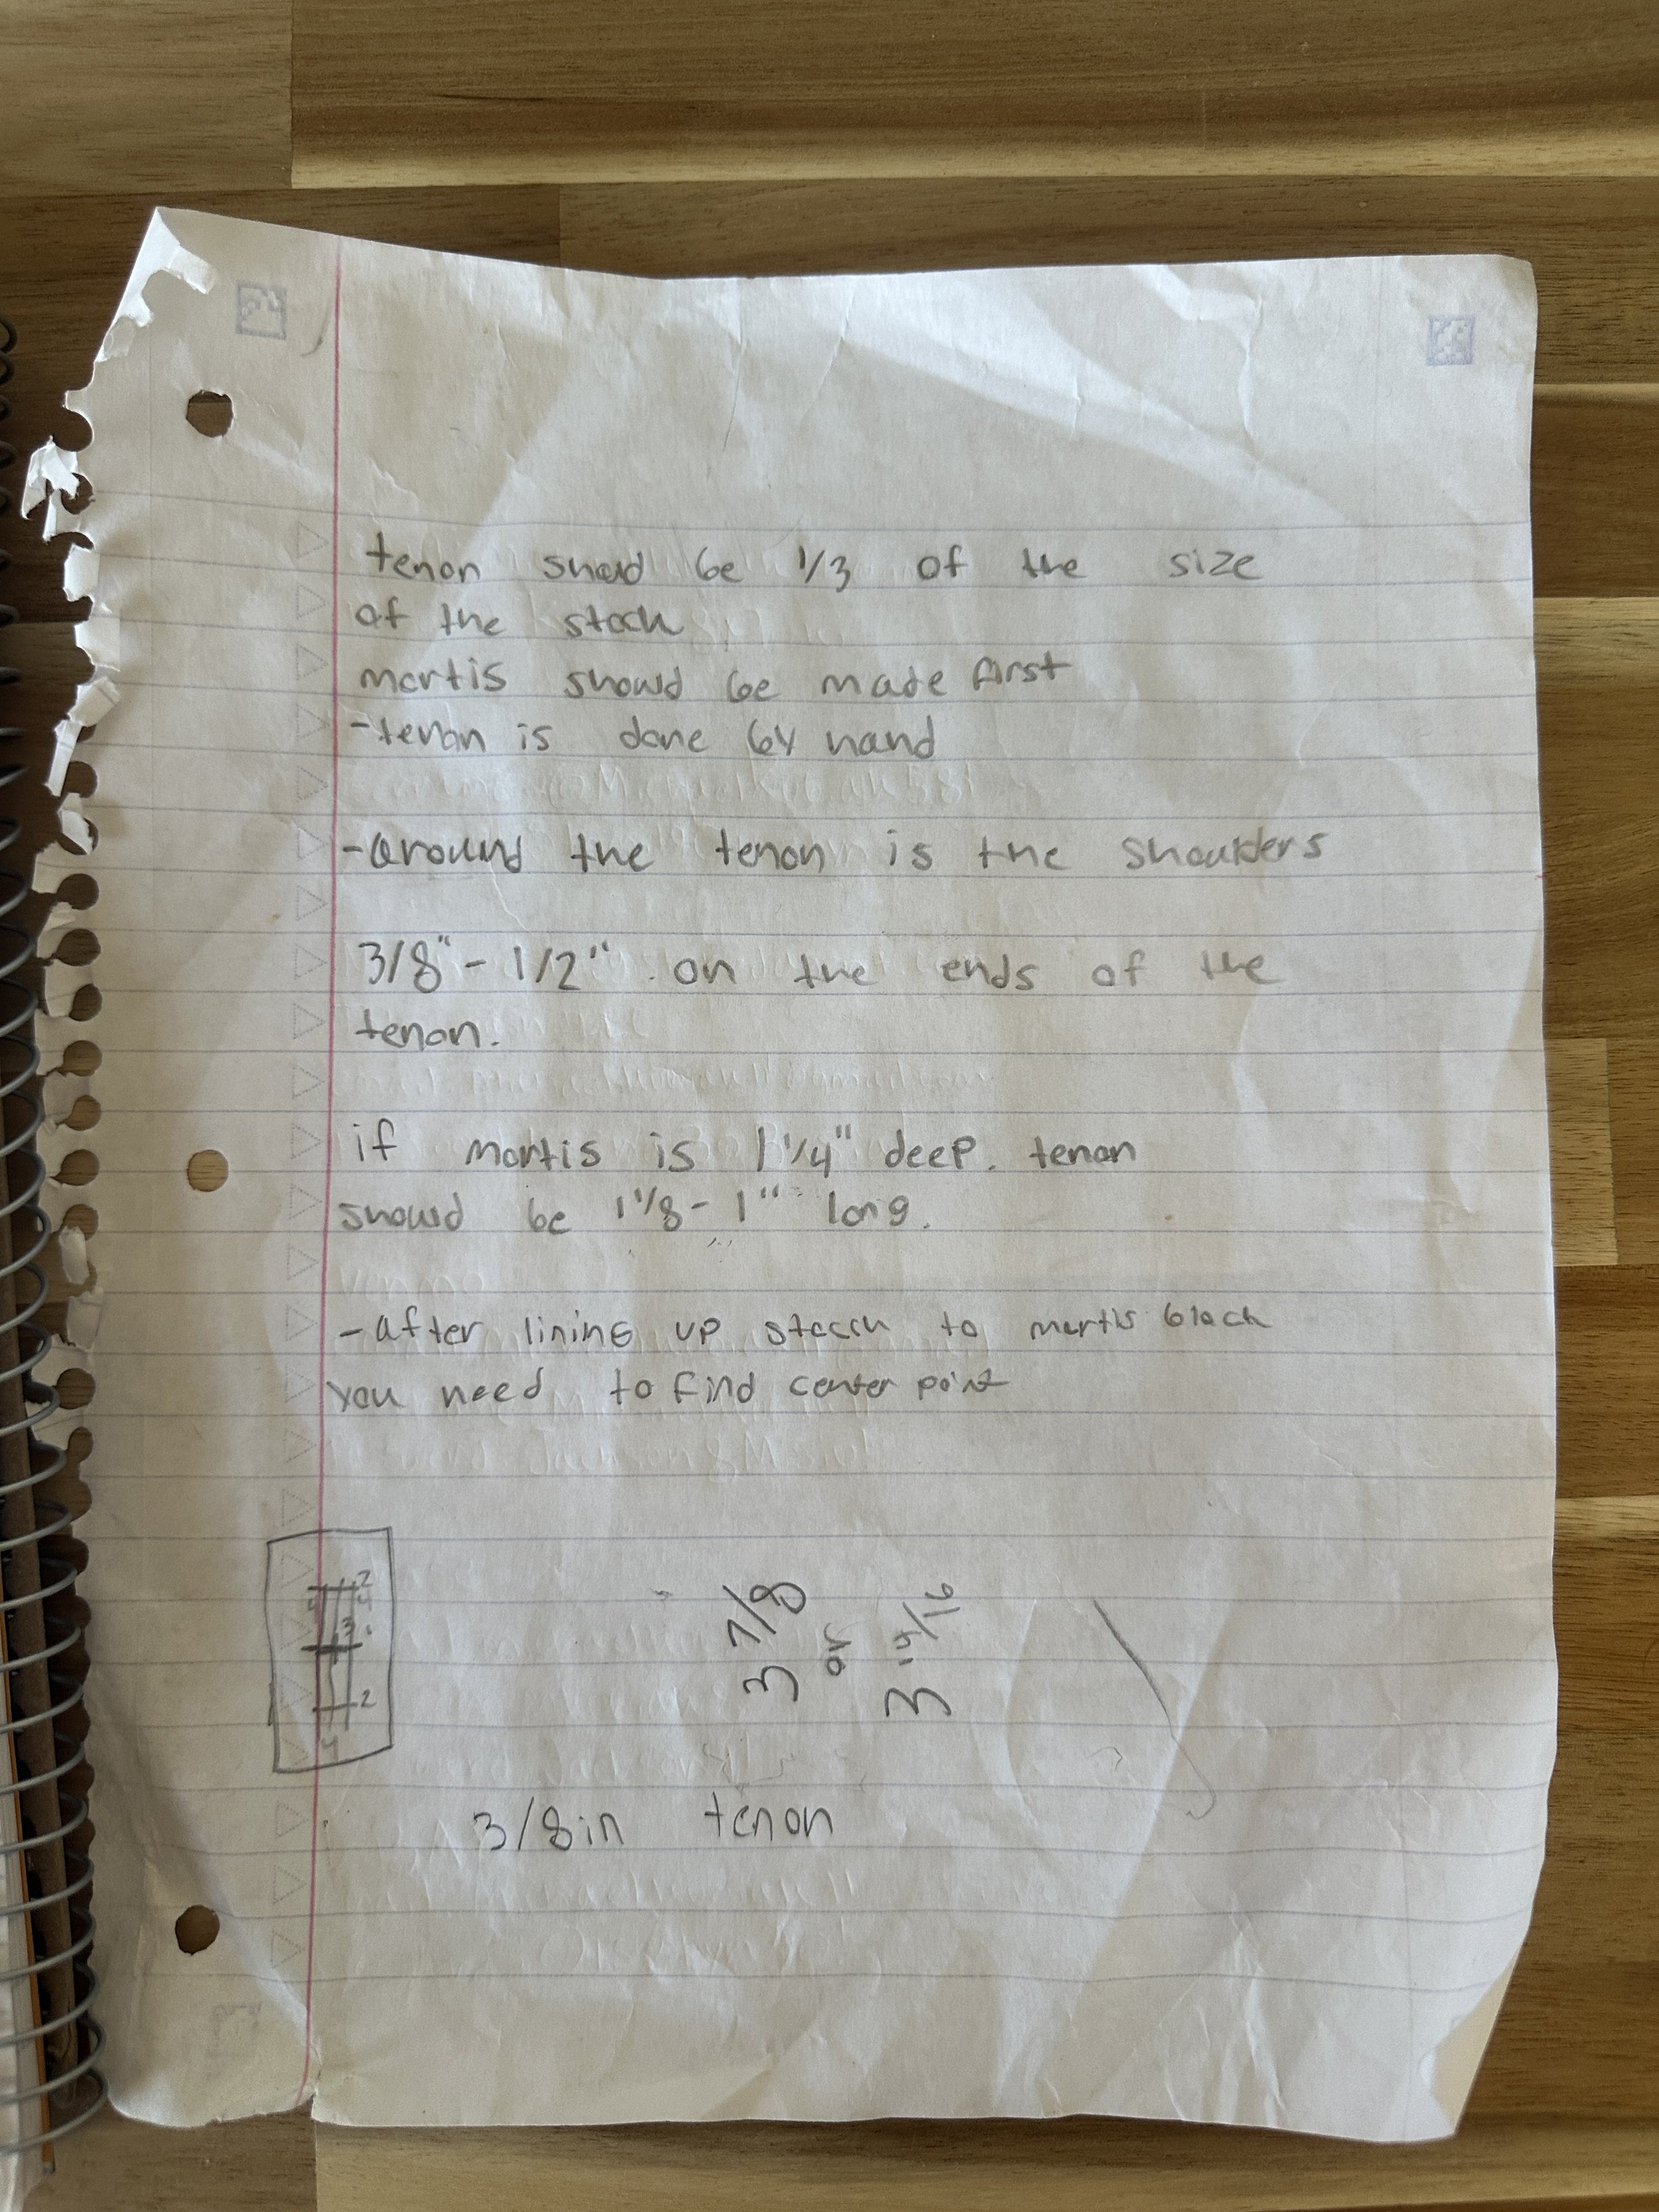 tenon shoud be 1/3 of the size
of the stock
mortis should be made first
-tenon is done by hand
-around the tenon is the shoulders
3/8" - 1/2" on the ends of the
tenon.
if mortis is 1 1/4" deep. tenon
should be 1 1/8 - 1" long.
-after lining up to mortis block
you need to find center point
2
3
2
4
3 7/8
or
3 14/16
3/8in tenon